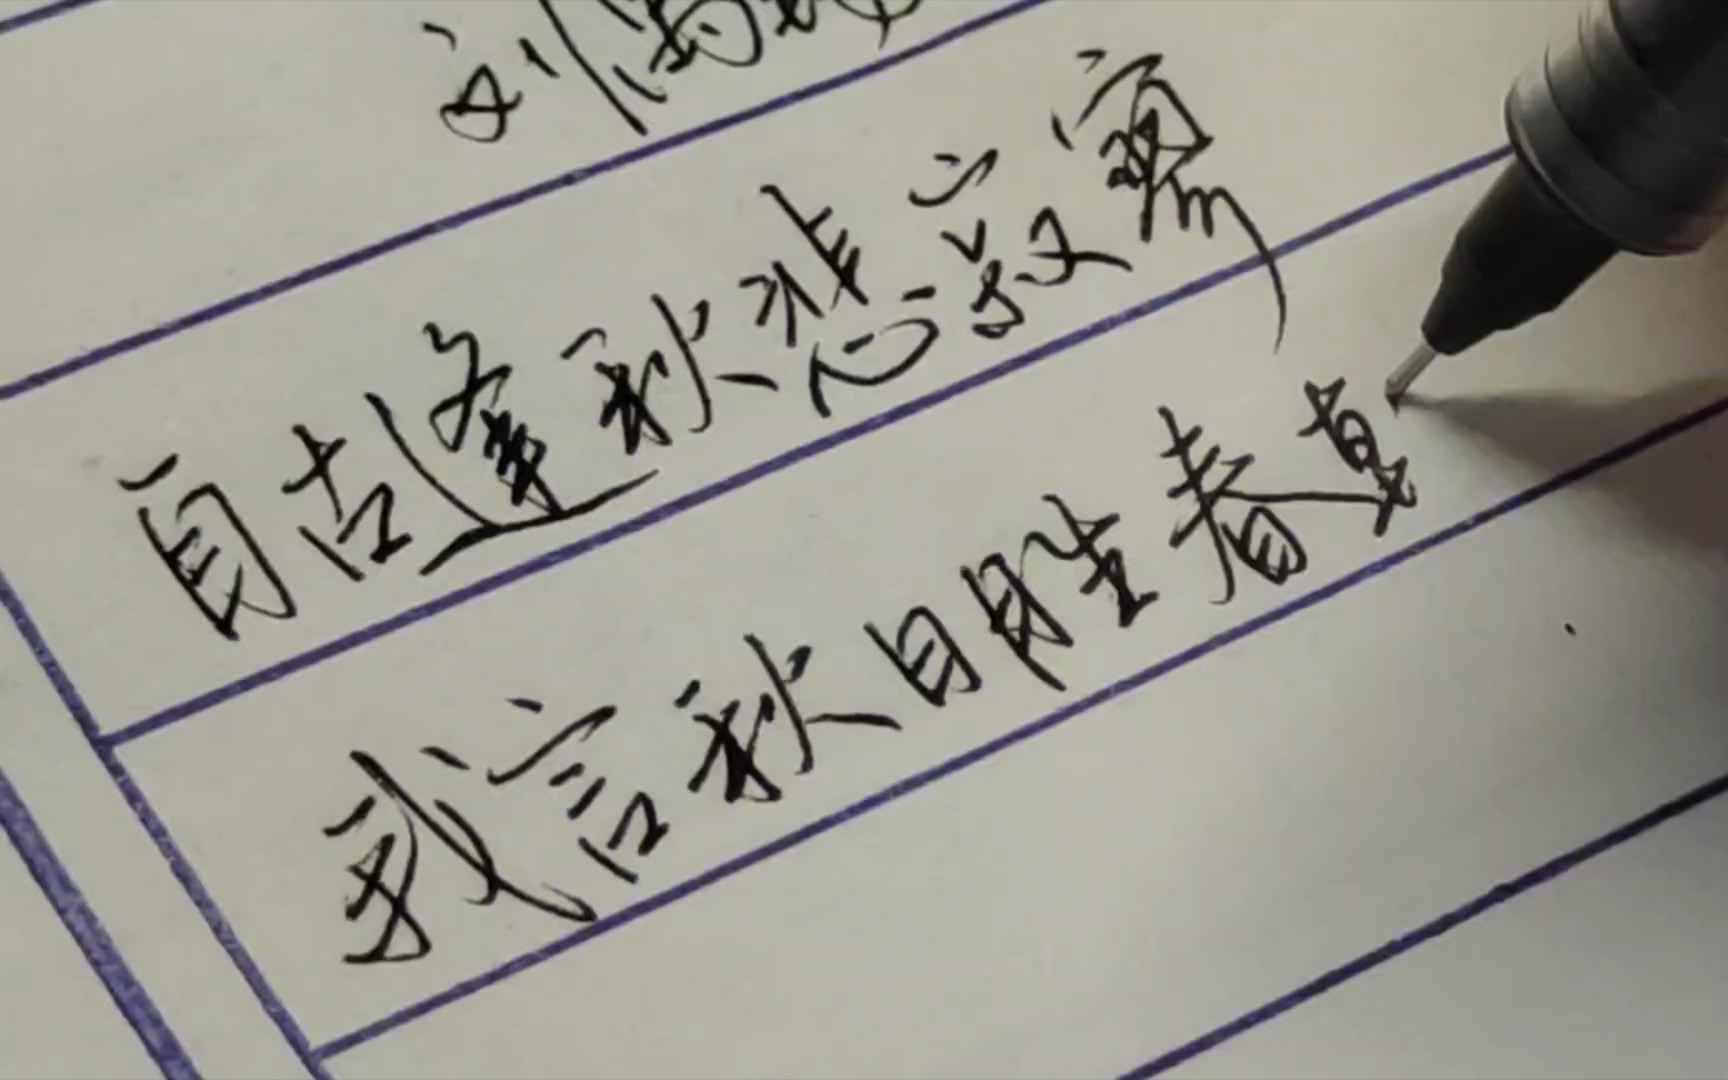 刘禹
自古逢秋悲寂寥
我言秋日胜春